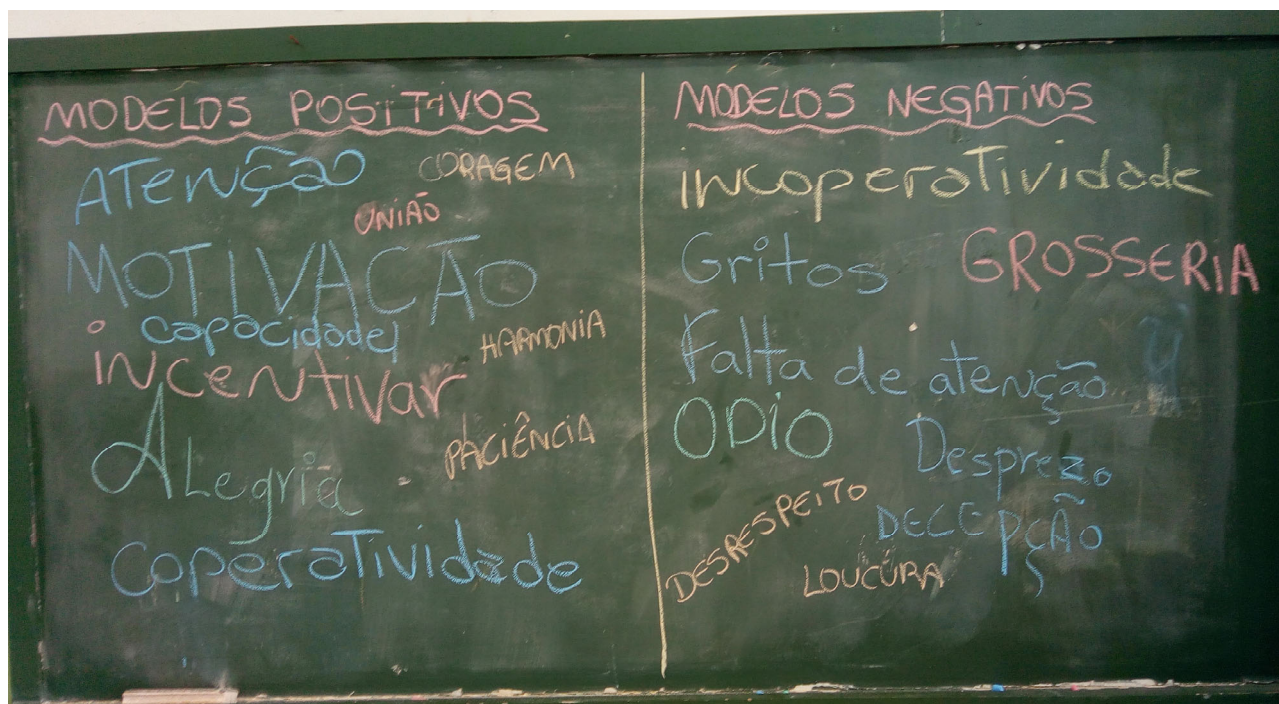 MODELOS POSITIVOS
ATENÇÃO CORAGEM
UNIÃO
MOTIVAÇÃO
capacidade
HARMONIA
iNCENTiVar
ALegria
PACIÊNCIA
COperaTividade
MODELOS NEGATIVOS
iNCOperaTividade
Gritos GROSSERIA
Falta de atenção
ODIO
Desprezo
DESRESPEITO
DECEPÇÃO
LOUCURA